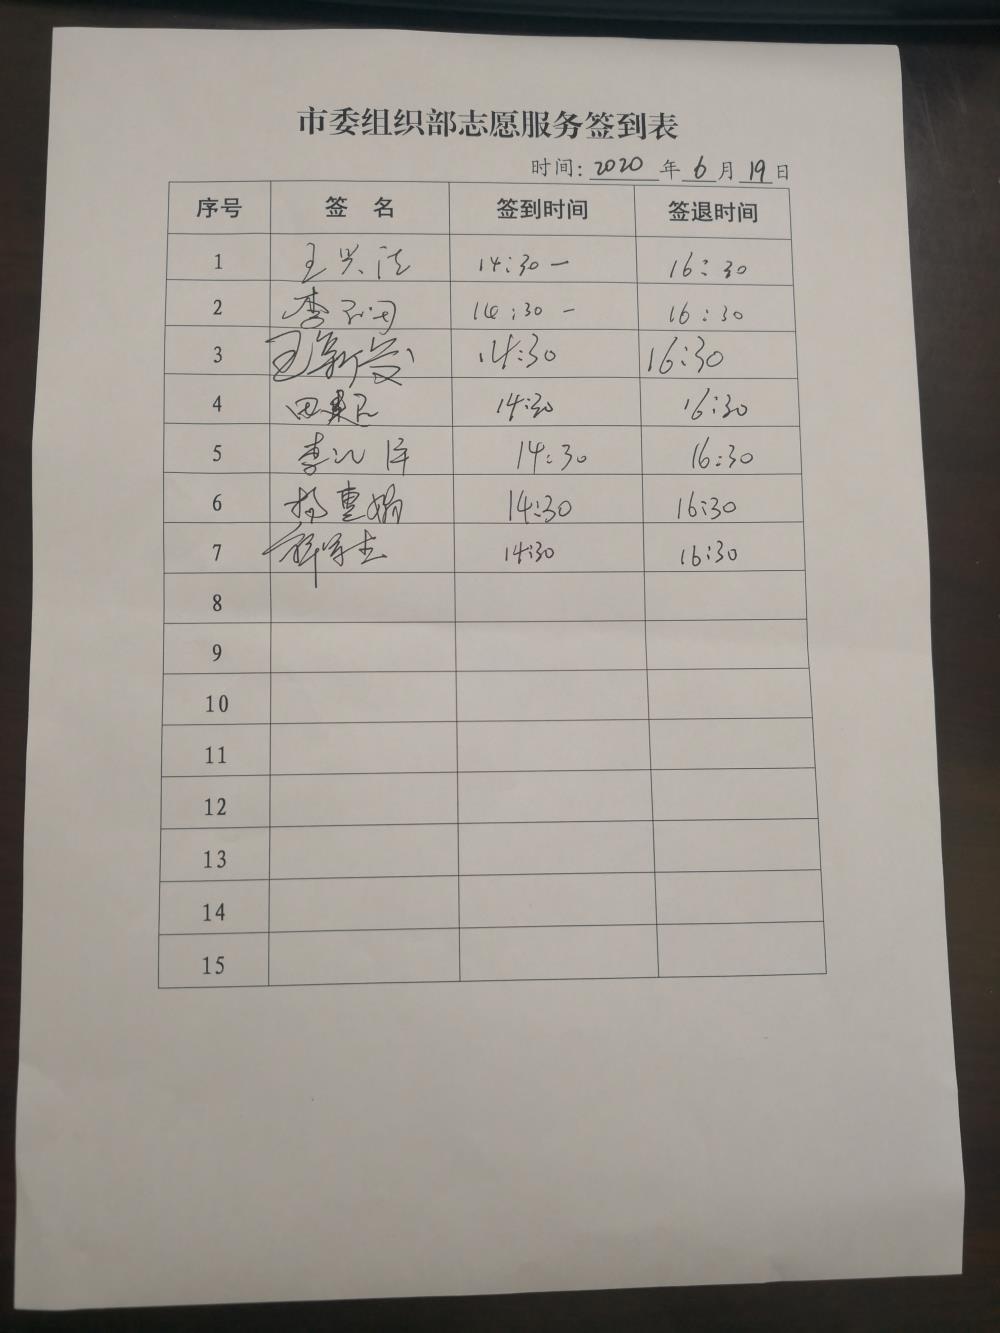 市委组织部志愿服务签到表
时间: 2020 年 6 月 19 日
序号 签 名 签到时间 签退时间
1 王兴法 14:30 — 16:30
2 李 14:30 — 16:30
3 王新发 14:30 16:30
4 田 14:30 16:30
5 李江洋 14:30 16:30
6 杨惠娟 14:30 16:30
7 14:30 16:30
8
9
10
11
12
13
14
15